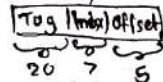 Tag Index Offset
20 7 5